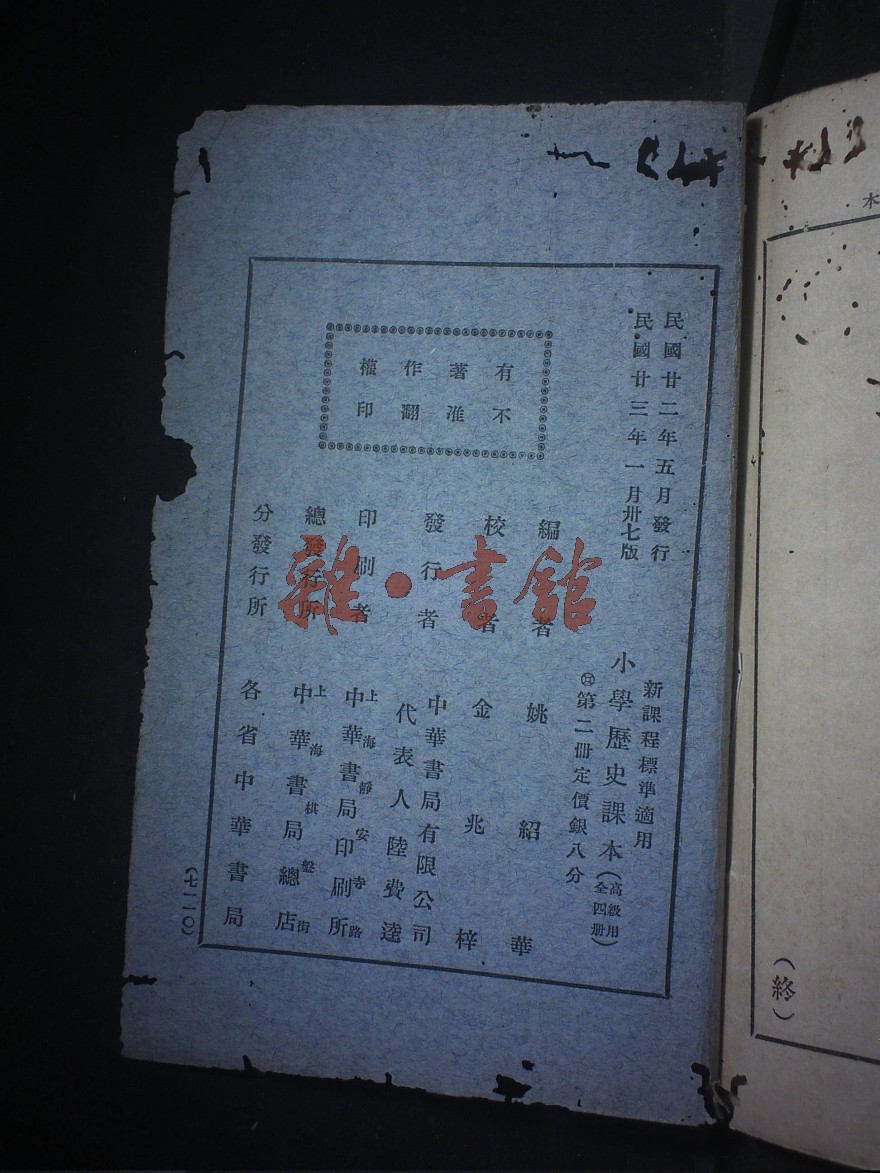 民國廿二年五月發行
民國廿三年一月卅七版
新課程標準適用
小學歷史課本(高級用全四册)
第二册定價銀八分
有著作權
不准翻印
編者 姚紹華
校者 金兆梓
發行者 中華書局有限公司
代表人陸費逵
印刷者 上海靜安寺路
中華書局印刷所
總發行所 上海棋盤街
中華書局總店
分發行所 各省中華書局
(七一一〇)
(終)
本
雜·書館